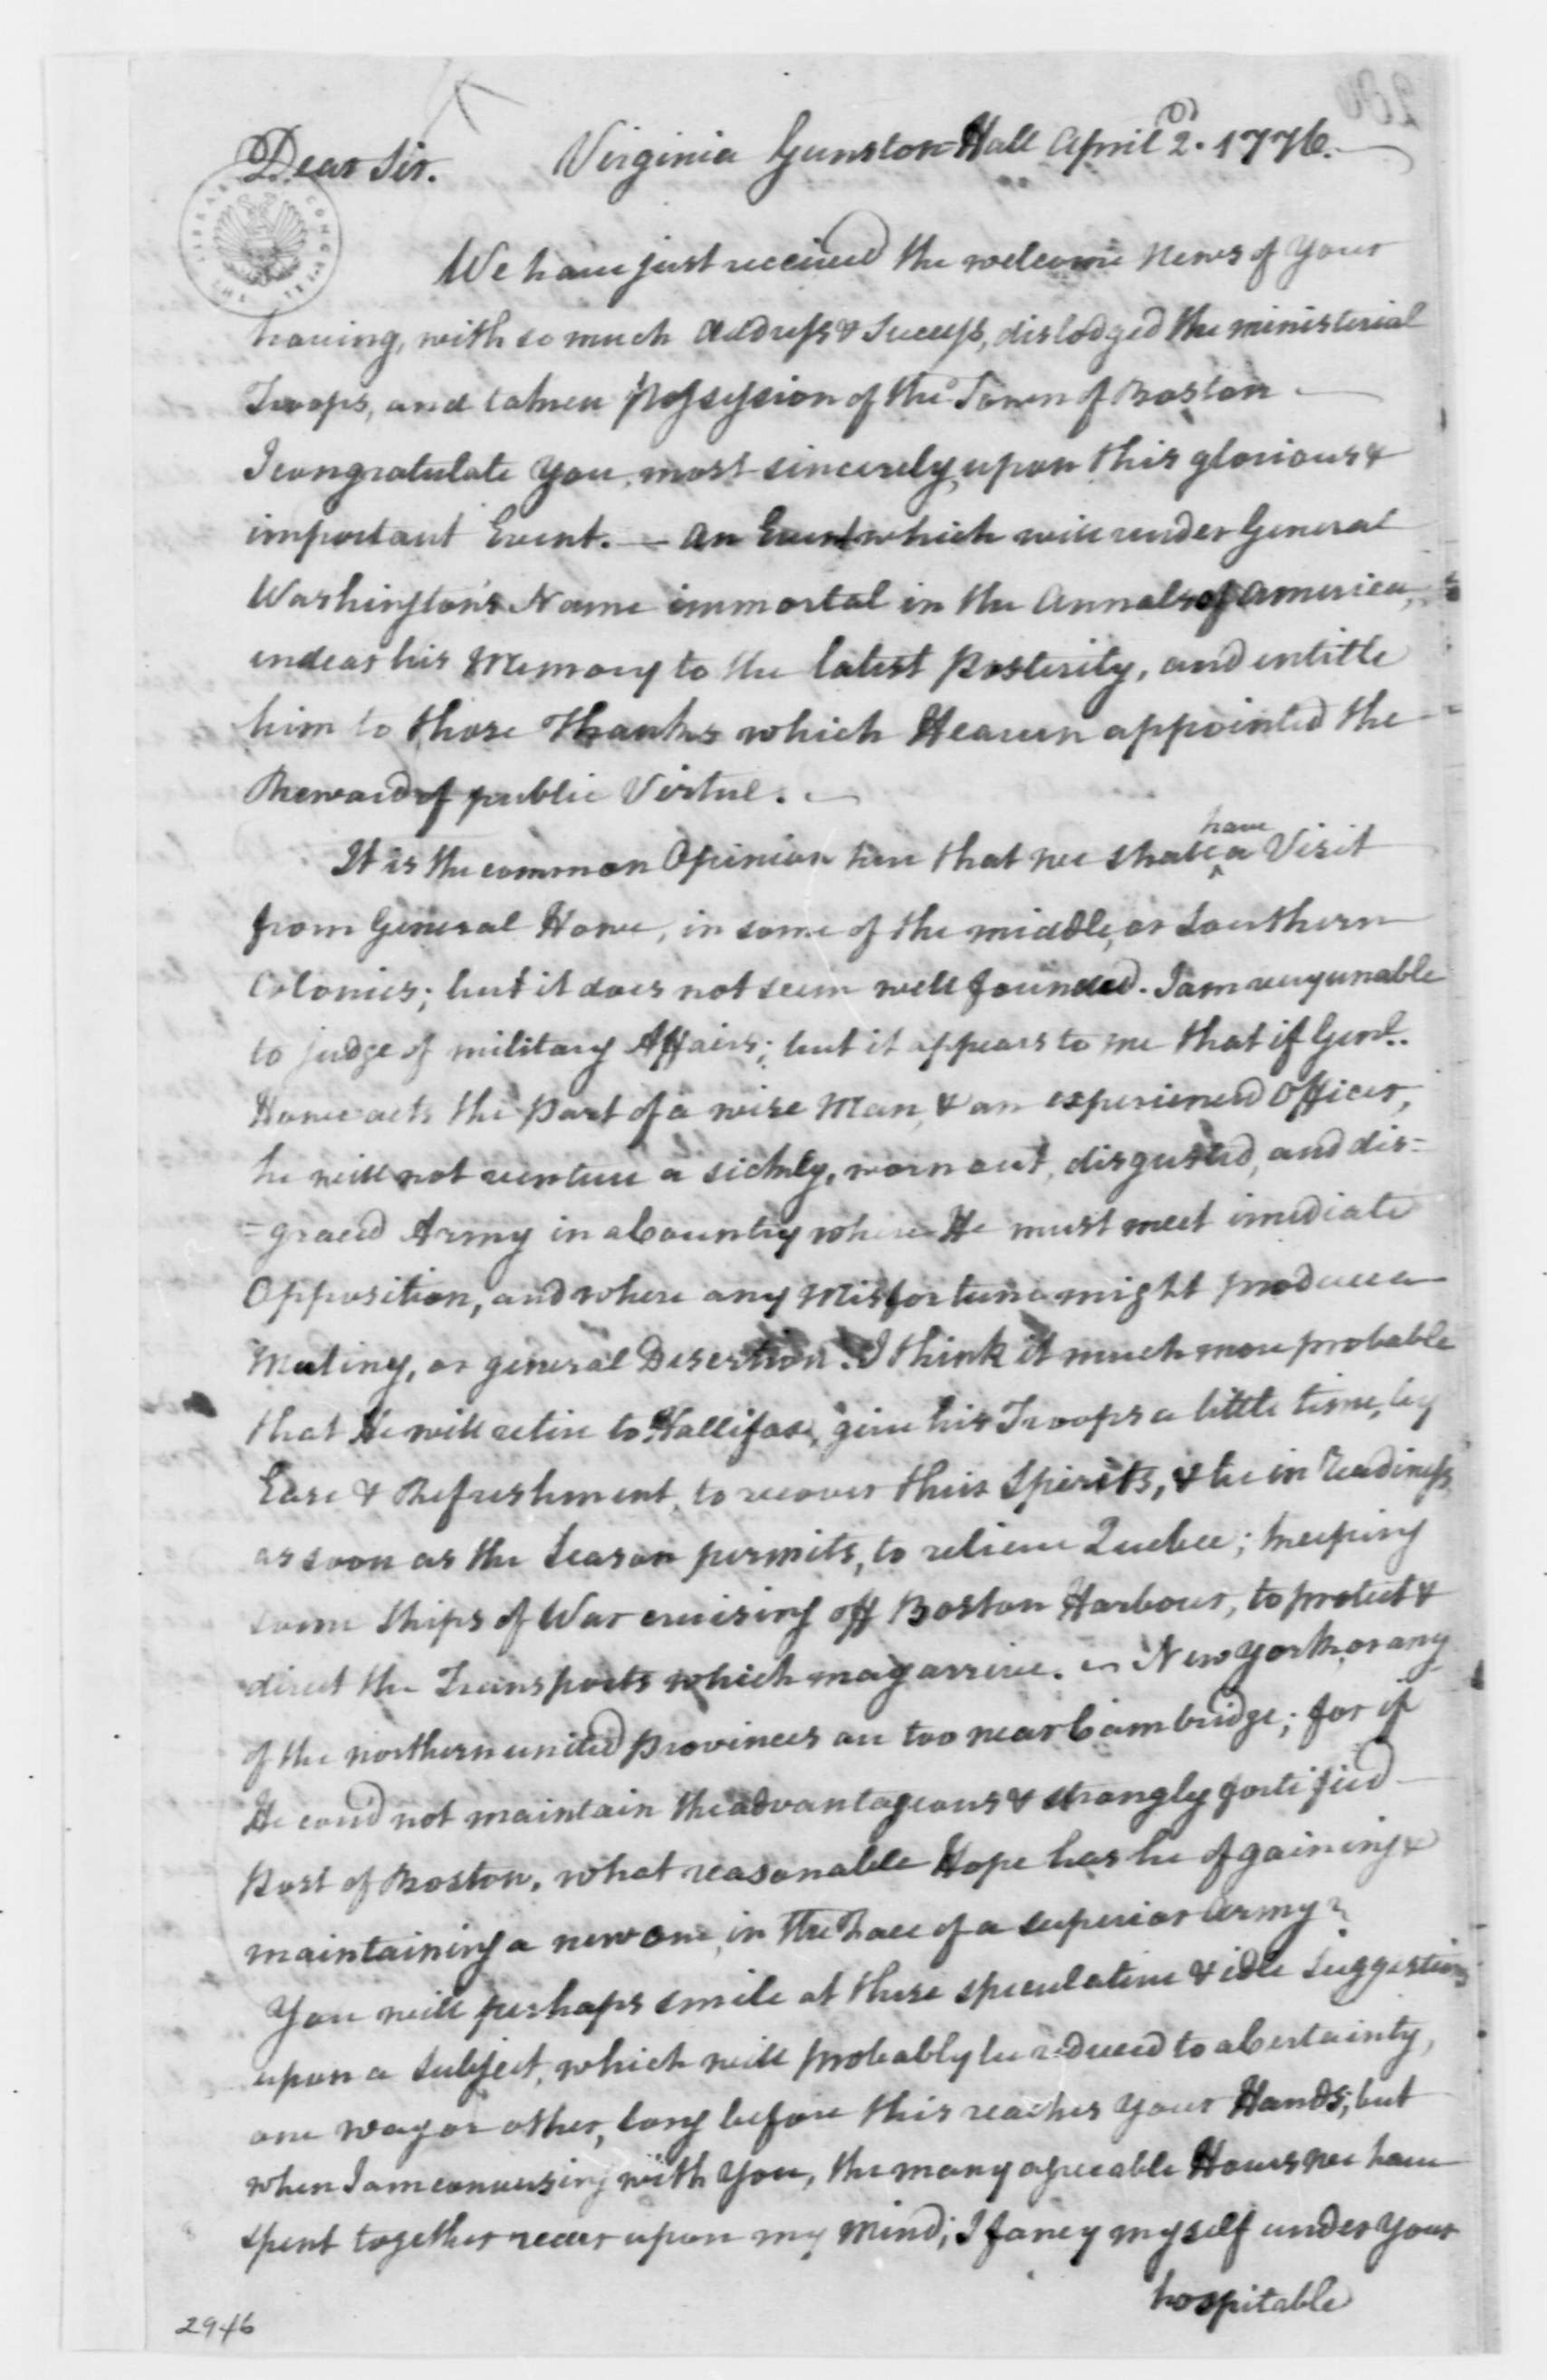 Dear Sir. Virginia Gunston-Hall April 2d. 1776.
We have just received the welcome News of Your
having, with so much Address & Success, dislodged the ministerial
Troops, and taken Possession of the Town of Boston.
I congratulate You most sincerely, upon this glorious &
important Event. — An Event which will render General
Washington's Name immortal in the Annals of America,
endear his Memory to the latest Posterity, and entitle
him to those Thanks which Heaven appointed the
Reward of public Virtue. —
It is the common Opinion here that we shall have a Visit
from General Howe, in some of the middle, or Southern
Colonies; but it does not seem well founded. I am very unable
to judge of military Affairs; but it appears to me that if Genl.
Howe acts the Part of a wise Man, & an experienced Officer,
he will not venture a sickly, worn out, disgusted, and dis=
=graced Army in a Country where He must meet imediate
Opposition, and where any Misfortune might produce a
Mutiny, or general Desertion. I think it much more probable
that He will retire to Hallifax, give his Troops a little time, by
Ease & Refreshment, to recover their Spirits, & be in Readiness,
as soon as the Season permits, to relieve Quebec; keeping
some Ships of War cruising off Boston Harbour, to protect &
direct the Transports which may arrive. — New York or any
of the northern united Provinces are too near Cambridge; for if
He cou'd not maintain the advantageous & strongly fortified
Post of Boston, what reasonable Hope has he of gaining &
maintaining a new one, in the Face of a superior Army?
You will perhaps smile at these speculative & idle Suggestions
upon a Subject, which will probably be reduced to a Certainty,
one way or other, long before this reaches Your Hands; but
when I am conversing with You, the many agreeable Hours we have
spent together recur upon my Mind; I fancy myself under Your
hospitable
2946